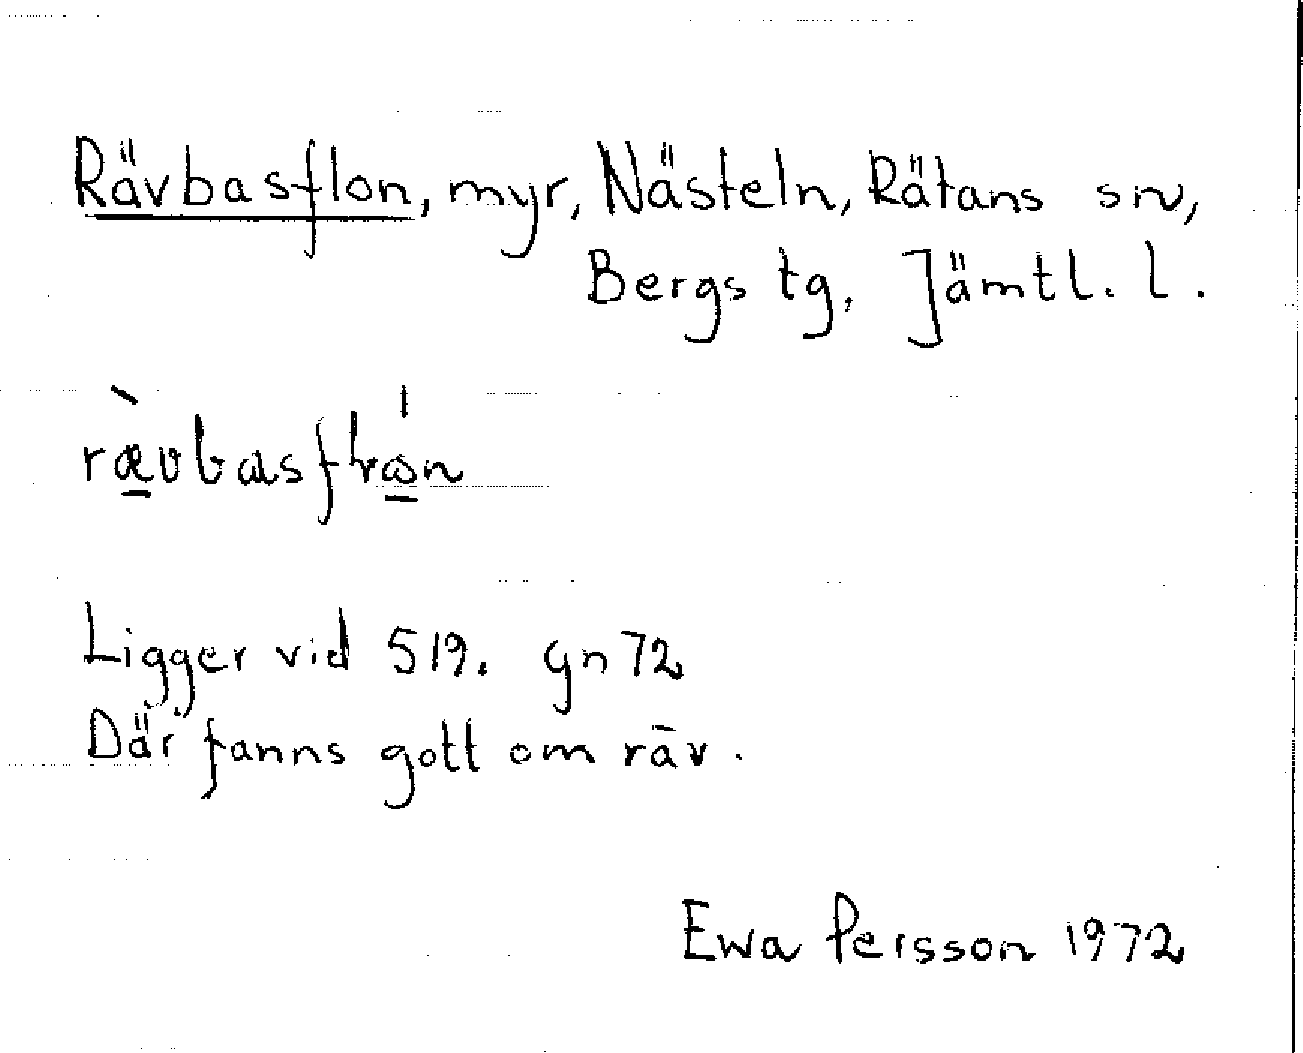 Rävbasflon, myr, Nästeln, Rätans sn,
Bergs tg, Jämtl. l.
Ligger vid 519. gn 72
Där fanns gott om räv.
Ewa Persson 1972